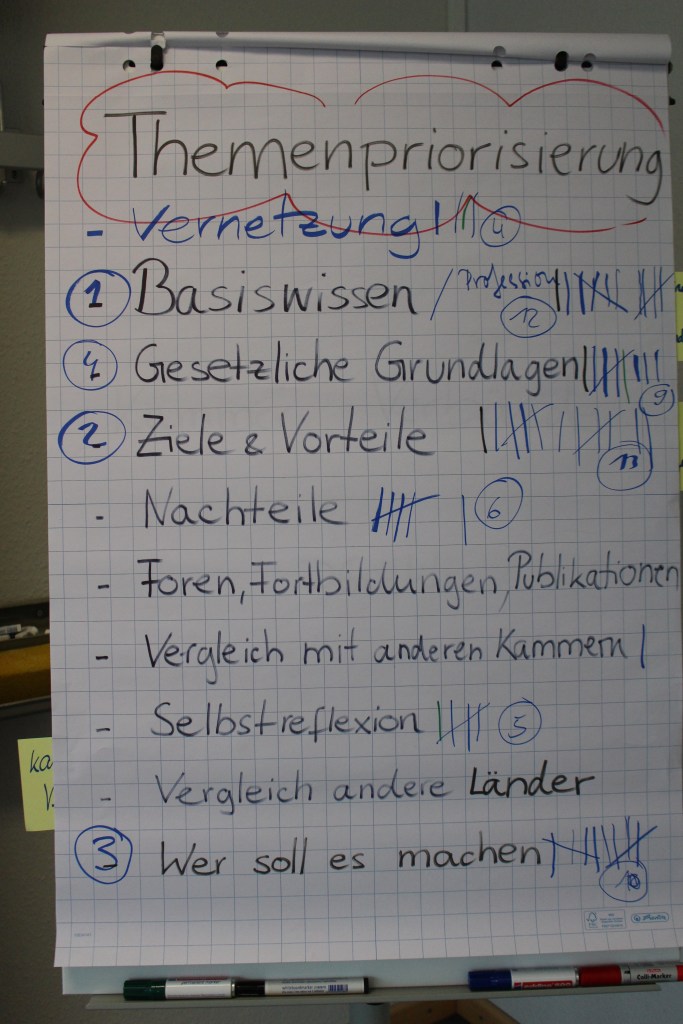 Themenpriorisierung
- Vernetzung |||| 4
1 Basiswissen / Profession 12
4 Gesetzliche Grundlagen 9
2 Ziele & Vorteile 13
- Nachteile 6
- Foren, Fortbildungen, Publikationen
- Vergleich mit anderen Kammern |
- Selbstreflexion 5
- Vergleich andere Länder
3 Wer soll es machen 10
ka
V.